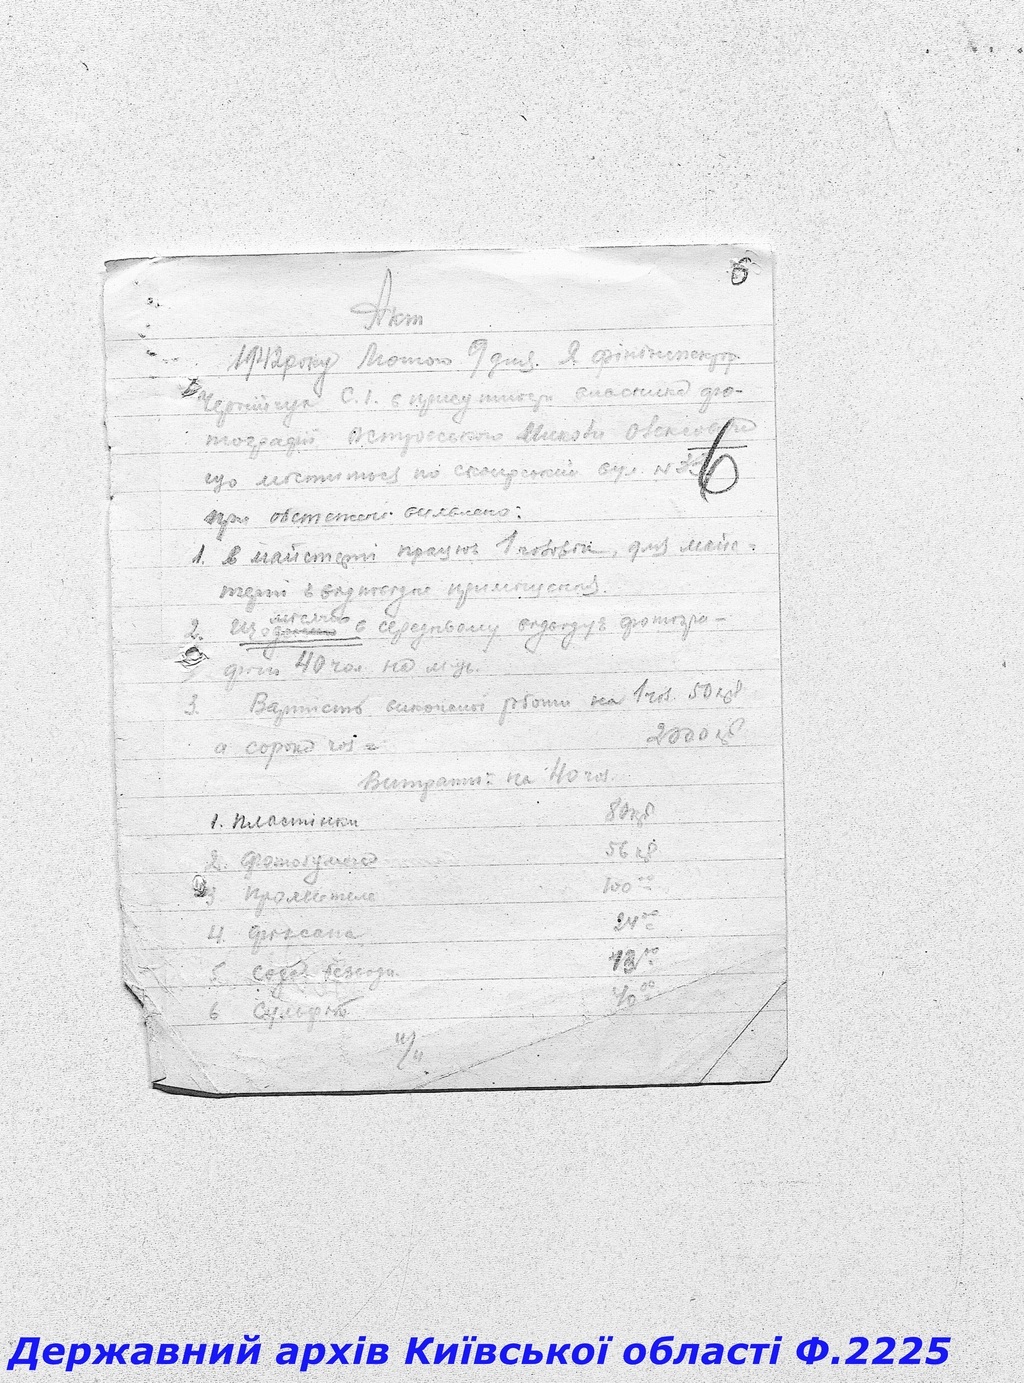 6
Акт
1942 року Лютого 9 дня. Я фінінспектор
С. І. в присутности власника фо-
тографії
що міститься по сквирській вул. №
6
при обстеженні виявлено:
1. в майстерні працює 1 чоловік, для майс-
терні є відповідне приміщення.
2. Що місячно в середньому відвідує фотогра-
фію 40 чол. на міс.
3. Вартість виконаної роботи на 1 чол. 50 крб
а сорока чол = 2000 крб
Витрати: на 40 чол.
1. Пластінки 80 крб
2. Фотобумага 56 крб
3 Проявителе 100 00
4. фіксажа 24 00
5 Сода безводн. 13 00
6 Сульфіт 40 00
Державний архів Київської області Ф.2225